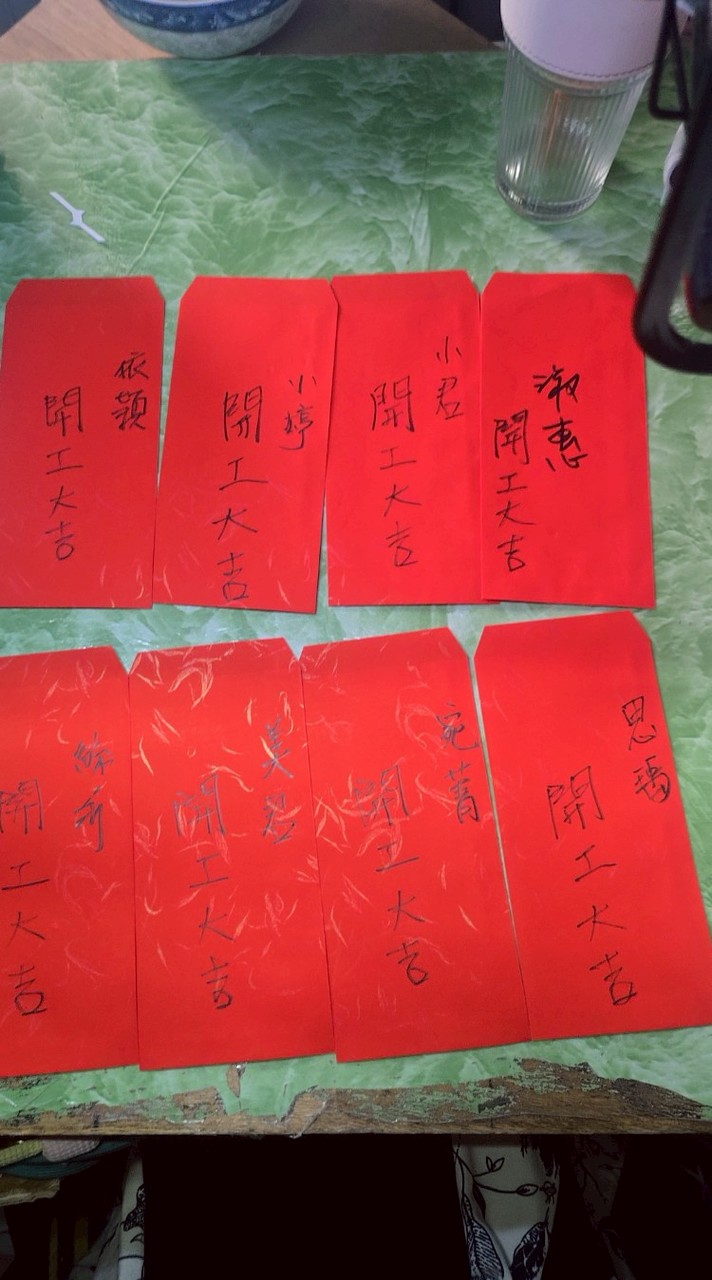 依穎
開工大吉
小婷
開工大吉
小君
開工大吉
淑惠
開工大吉
開工大吉
美君
開工大吉
宛菁
開工大吉
思瑀
開工大吉